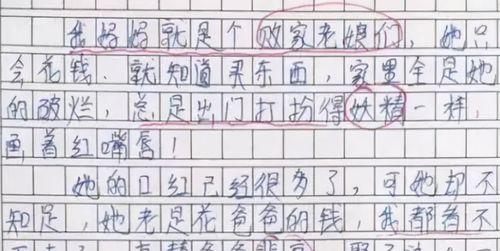 我妈妈就是个败家老娘们，她只
会花钱、就知道买东西，家里全是她
的破烂，总是出门打扮得妖精一样，
画着红嘴唇！
她的口红已经很多了，可她却不
知足，她老是花爸爸的钱，我都看不